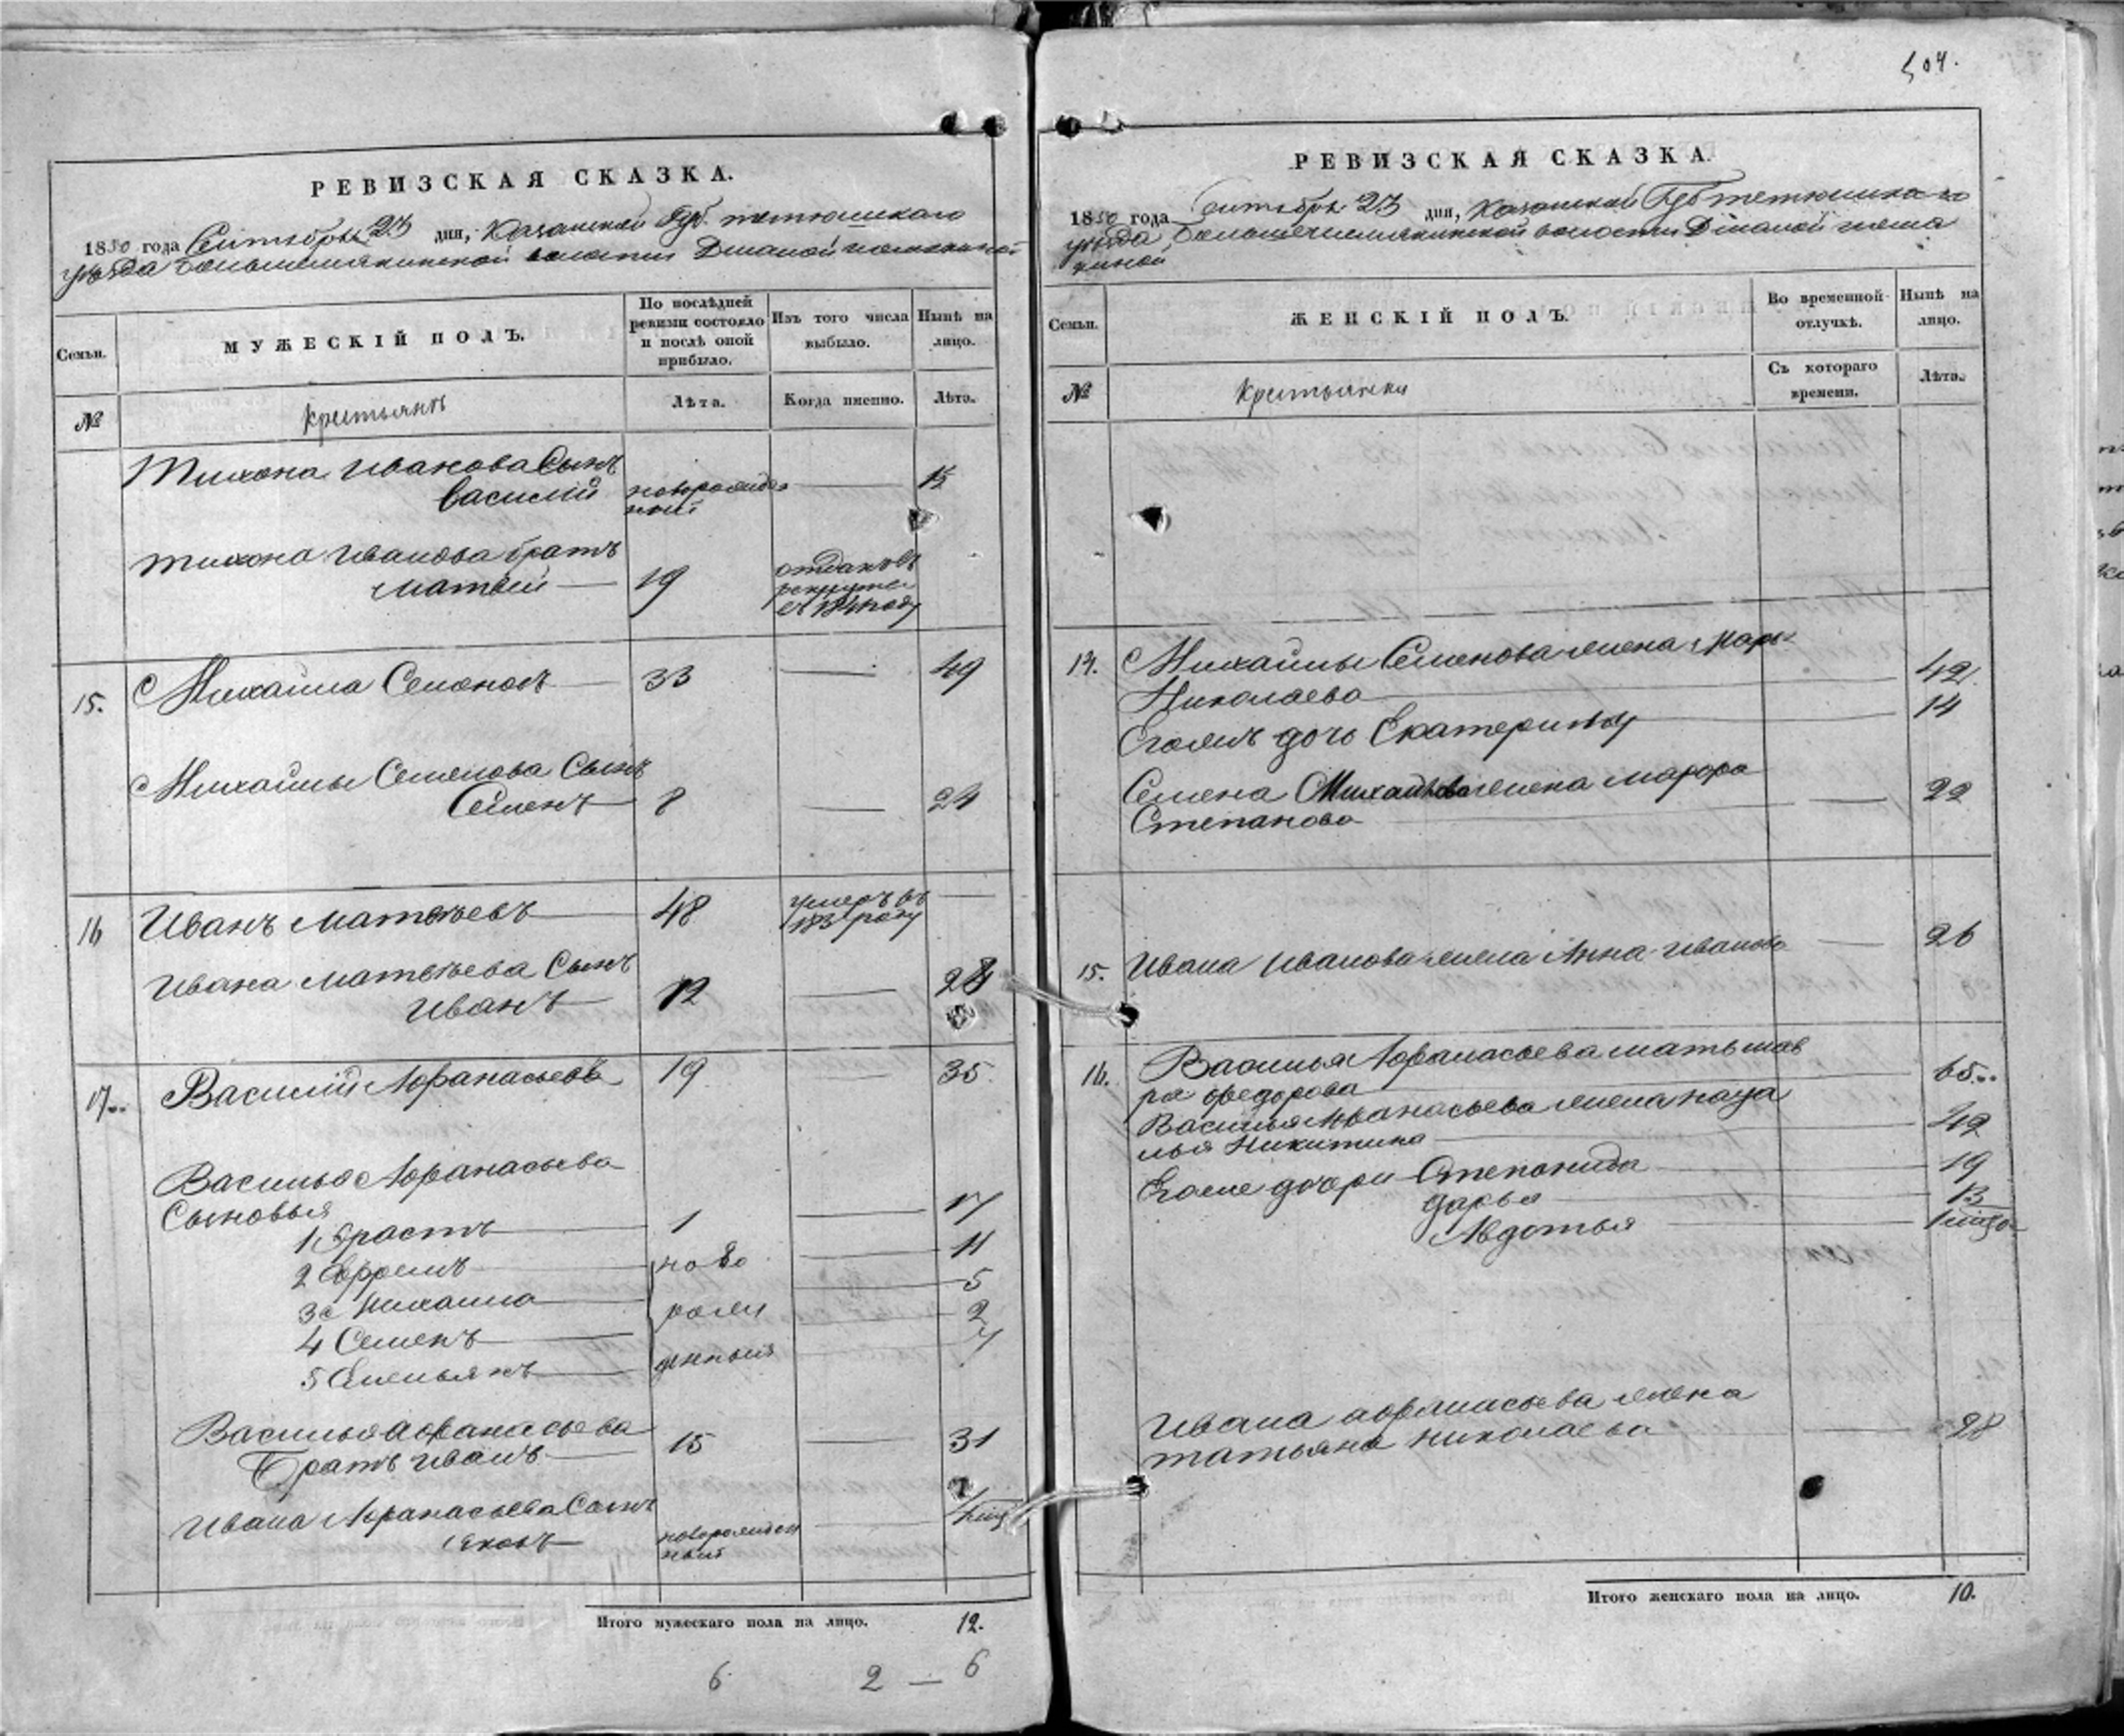 504.
РЕВИЗСКАЯ СКАЗКА.
1850 года Сентября 23 дня, Казанской Губ. тетюшскаго
уезда волости
Семьи.
МУЖЕСКІЙ ПОЛЪ.
По послѣдней
ревизіи состояло
и послѣ оной
прибыло.
Изъ того числа
выбыло.
Нынѣ на
лицо.
№
Крестьянъ
Лѣта.
Когда именно.
Лѣта.
Тихона Иванова Сынъ
Василий новорожден ный 15
Тихона Иванова братъ
Матвей 19 отданъ въ рекруты
15. Михаила Семеновъ 33 49
Михайлы Семенова Сынъ
Семенъ 8 24
16 Иванъ Матвѣевъ 48 умеръ въ году
Ивана Матвѣева Сынъ
Иванъ 12 28
17. Василий Афанасьевъ 19 35
Василья Афанасьева
Сыновья
1 Ераст 1 17
2 Ефремъ ново 11
3 Михаила 5
4 Семенъ рож 2
5 Емельянъ денныя
Василья Афанасьева
братъ Иванъ 15 31
Ивана Афанасьева Сынъ
Яковъ новорожден ный
Итого мужескаго пола на лицо. 12.
6 2 — 6
РЕВИЗСКАЯ СКАЗКА.
1850 года Сентября 23 дня, Казанской Губ тетюшска го
уезда волости
Семьи.
ЖЕНСКІЙ ПОЛЪ.
Во временной
отлучкѣ.
Нынѣ на
лицо.
№
Крестьянки
Съ котораго
времени.
Лѣта.
14. Михайлы Семенова жена Марья
Николаева 42
Егожъ дочь Екатерина 14
Семена Михайлова жена Марфа
Степанова 22
15. Ивана Иванова жена Анна Иванова 26
16. Василья Афанасьева мать мав
ра федорова 65
Василья Афанасьева жена ната
лья Никитина 42
Егоже дочери Степанида 19
Дарья 13
Авдотья
Ивана Афанасьева жена
татьяна николаева 28
Итого женскаго пола на лицо. 10.